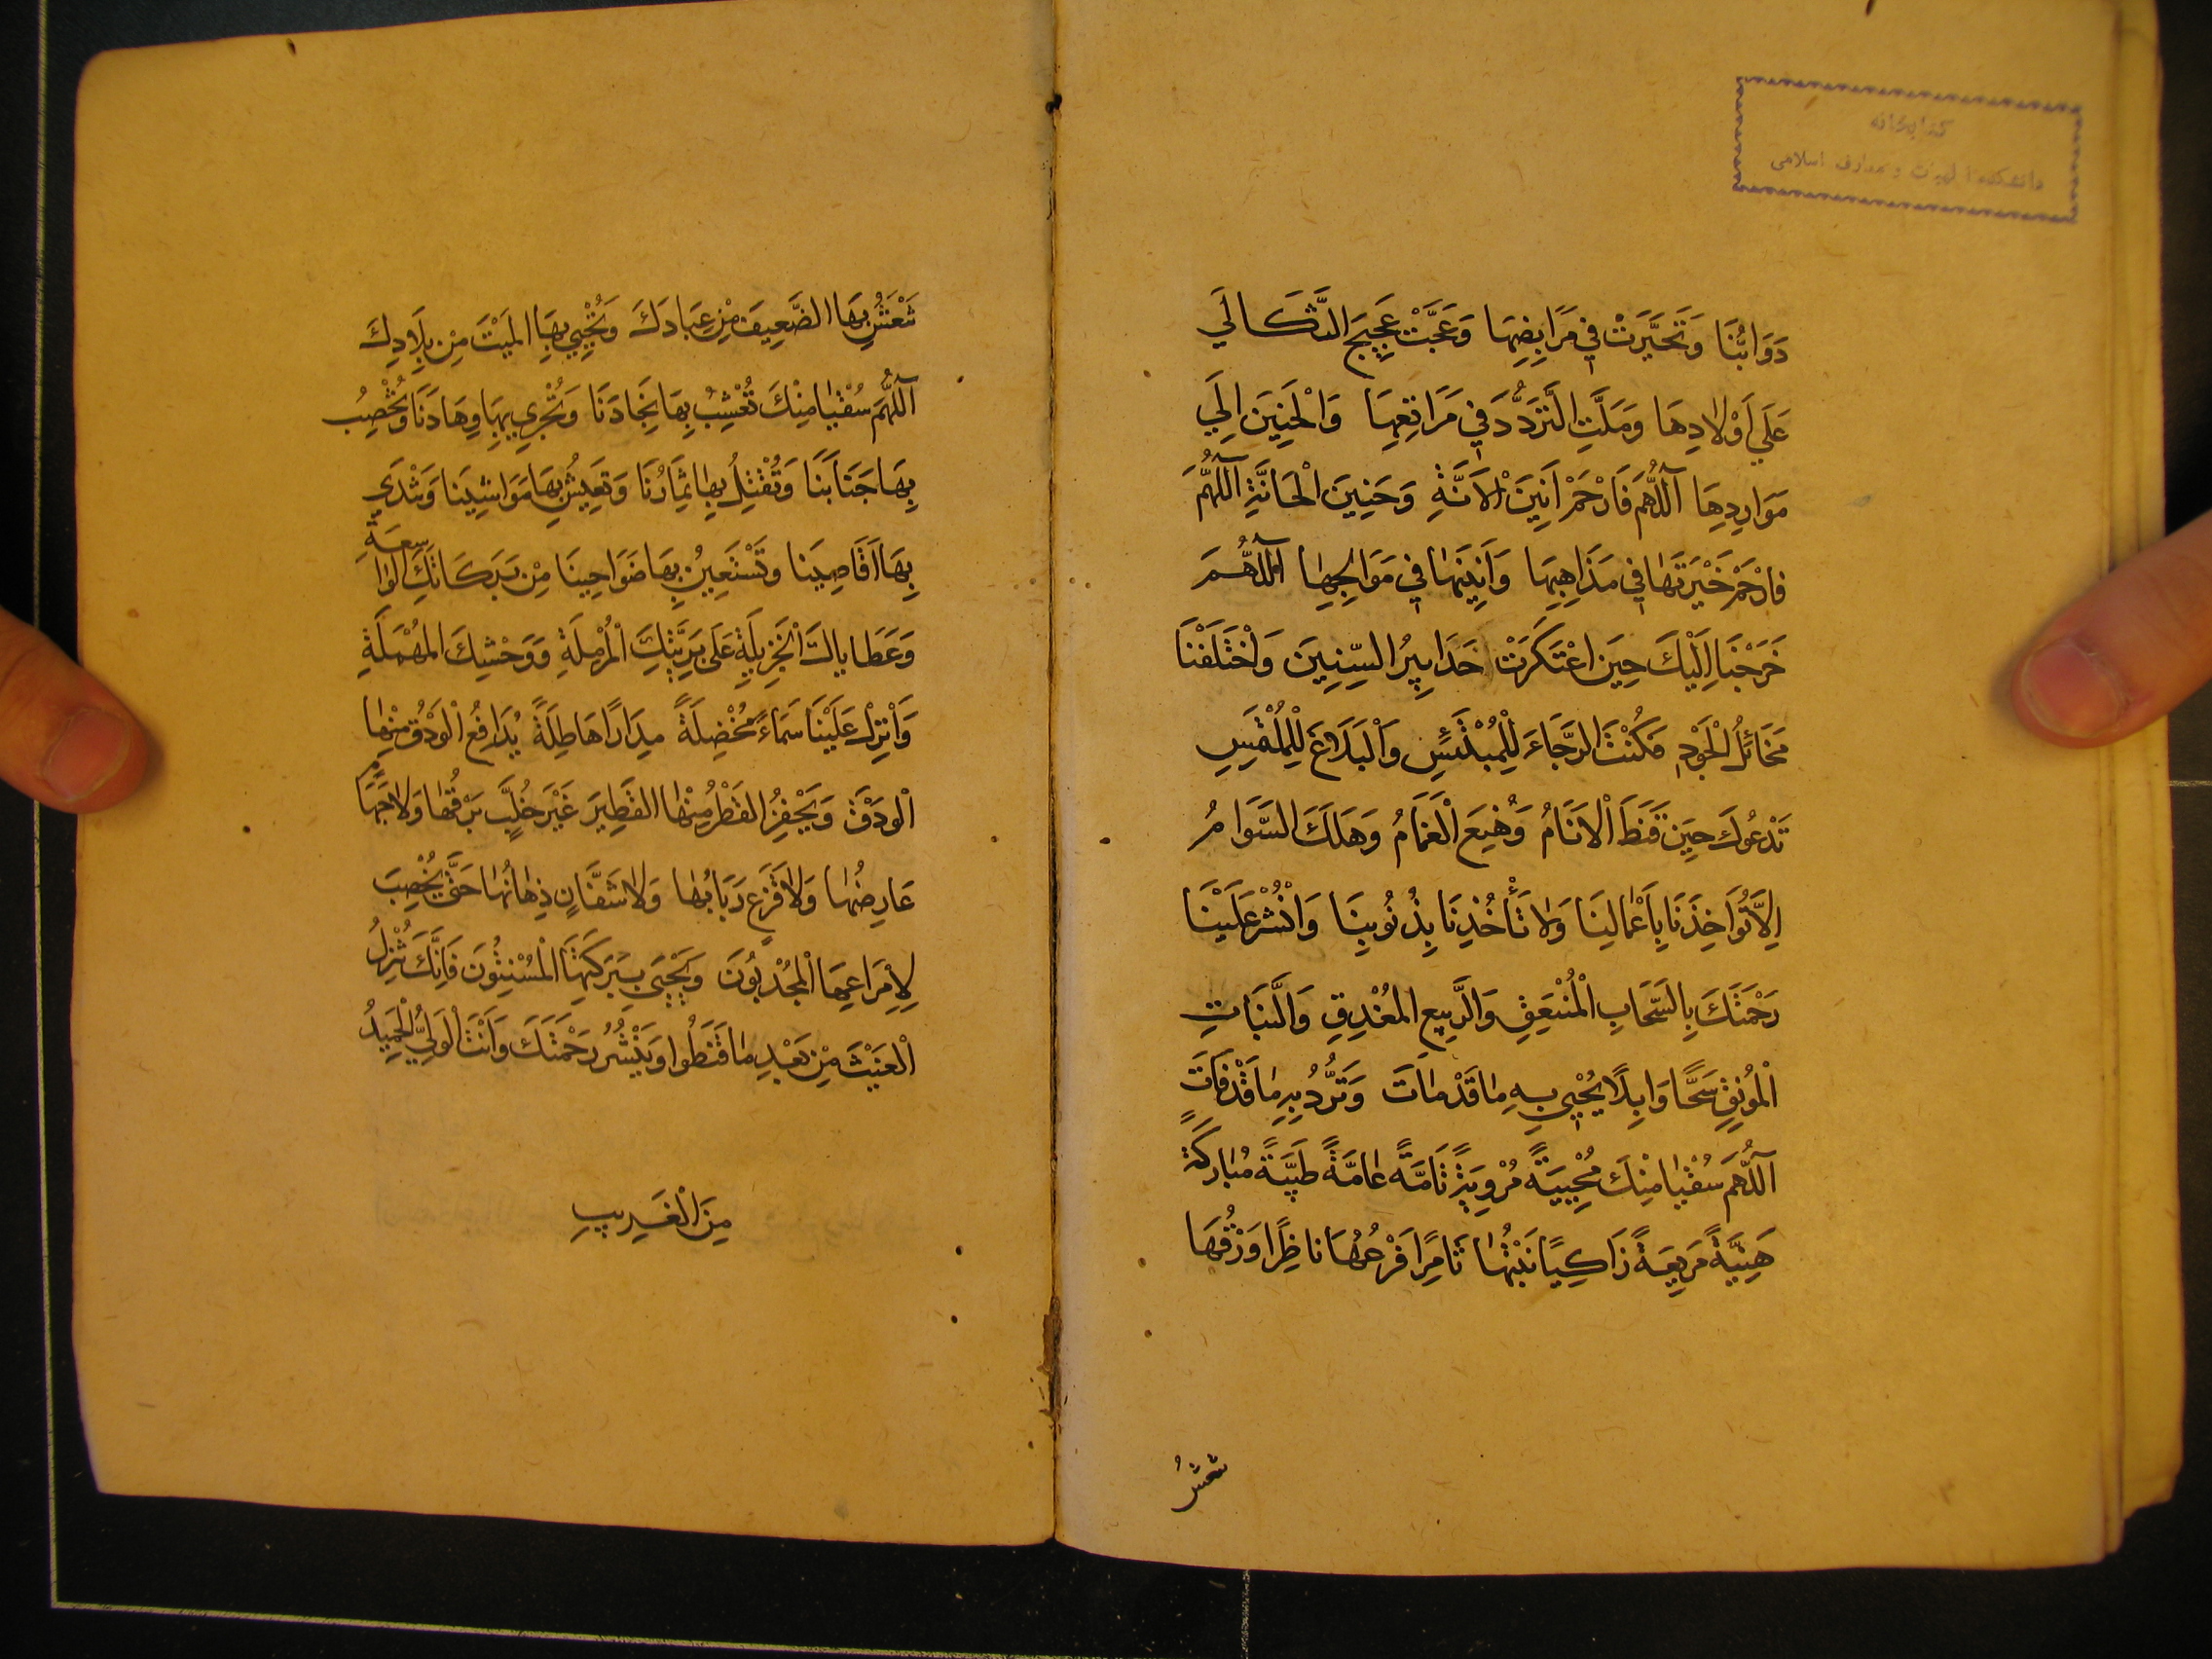 كتابخانه
دانشكده الهيات و معارف اسلامى
دَوَابُّنَا وَتَحَيَّرَتْ في مَرَابِضِهَا وَعَجَّتْ عَجِيجَ الثَّكَالَي
عَلَي اَوْلادِهَا وَمَلَّتِ التَّرَدُّدَ في مَرَاتِعِهَا وَالْحَنِينَ اِلَي
مَوَارِدِهَا اَللّهُمَّ فَارْحَمْ اَنِينَ الْانَّةِ وَحَنِينَ الْحَانَّةِ اَللّهُمَّ
فَارْحَمْ حَيْرَتَهَا في مَذَاهِبِهَا وَاَنِينَهَا في مَوَالِجِهَا اَللّهُمَّ
خَرَجْنَا اِلَيْكَ حِينَ اعْتَكَرَتْ حَدَابِيرُ السِّنِينَ وَاخْتَلَفْنَا
مَخَائِلُ الْجَوْدِ فَكُنْتَ الرَّجَاءَ لِلْمُبْتَئِسِ وَالْبَلَاغَ لِلْمُلْتَمِسِ
نَدْعُوكَ حِينَ قَنَطَ الْانَامُ وَمُنِعَ الْغَمَامُ وَهَلَكَ السَّوَامُ
اِلَّا تُوَاخِذَنَا بِاَعْمالِنَا وَلا تَأْخُذَنَا بِذُنُوبِنَا وَانْشُرْ عَلَيْنَا
رَحْمَتَكَ بِالسَّحَابِ الْمُنْبَعِقِ وَالرَّبِيعِ الْمُغْدِقِ وَالنَّبَاتِ
الْمُونِقِ سَحًّا وَابِلًا يُحْيِي بِهِ مَا قَدْ مَاتَ وَتَرُدُّ بِهِ مَا قَدْ فَاتَ
اَللّهُمَّ سُقْيَا مِنْكَ مُحْيِيَةً مُرْوِيَةً تَامَّةً عَامَّةً طَيِّبَةً مُبَارَكَةً
هَنِيَّةً مَرِيعَةً زَاكِيًا نَبْتُهَا ثَامِرًا فَرْعُهَا نَاظِرًا وَرَقُهَا
تنعش
تَنْعَشُ بِهَا الضَّعِيفَ مِنْ عِبَادِكَ وَتُحْيِي بِهَا الْمَيْتَ مِنْ بِلَادِكَ
اَللّهُمَّ سُقْيَا مِنْكَ تُعْشِبُ بِهَا نِجَادَنَا وَتُجْرِي بِهَا وِهَادَنَا وَتُخْصِبُ
بِهَا جَنَابَنَا وَتُقْبِلُ بِهَا ثِمَارُنَا وَتَعِيشُ بِهَا مَوَاشِينَا وَتَنْدَي
بِهَا اَقَاصِينَا وَتَسْتَعِينُ بِهَا ضَوَاحِينَا مِنْ بَرَكَاتِكَ الْوَاسِعَةِ
وَعَطَايَاكَ الْجَزِيلَةِ عَلَي بَرِيَّتِكَ الْمُرْمِلَةِ وَوَحْشِكَ الْمُهْمَلَةِ
وَاَنْزِلْ عَلَيْنَا سَمَاءً مُخْضِلَةً مِدَارًا هَاطِلَةً يُدَافِعُ الْوَدْقُ مِنْهَا
الْوَدْقَ وَيَحْفِزُ الْقَطْرُ مِنْهَا الْقَطِيرَ غَيْرَ خُلَّبٍ بَرْقُهَا وَلاجَهَامٍ
عَارِضُهَا وَلا قَزَعٍ رَبَابُهَا وَلا شَفَّانٍ ذِهَابُهَا حَتَّي يُخْصِبَ
لِاِمْرَاعِهَا الْمُجْدِبُونَ وَيَحْيَي بِبَرَكَتِهَا الْمُسْنِتُونَ فَاِنَّكَ تُنْزِلُ
الْغَيْثَ مِنْ بَعْدِ مَا قَنَطُوا وَتَنْشُرُ رَحْمَتَكَ وَاَنْتَ الْوَلِيُّ الْحَمِيدُ
مِنَ الْغَرِيبِ